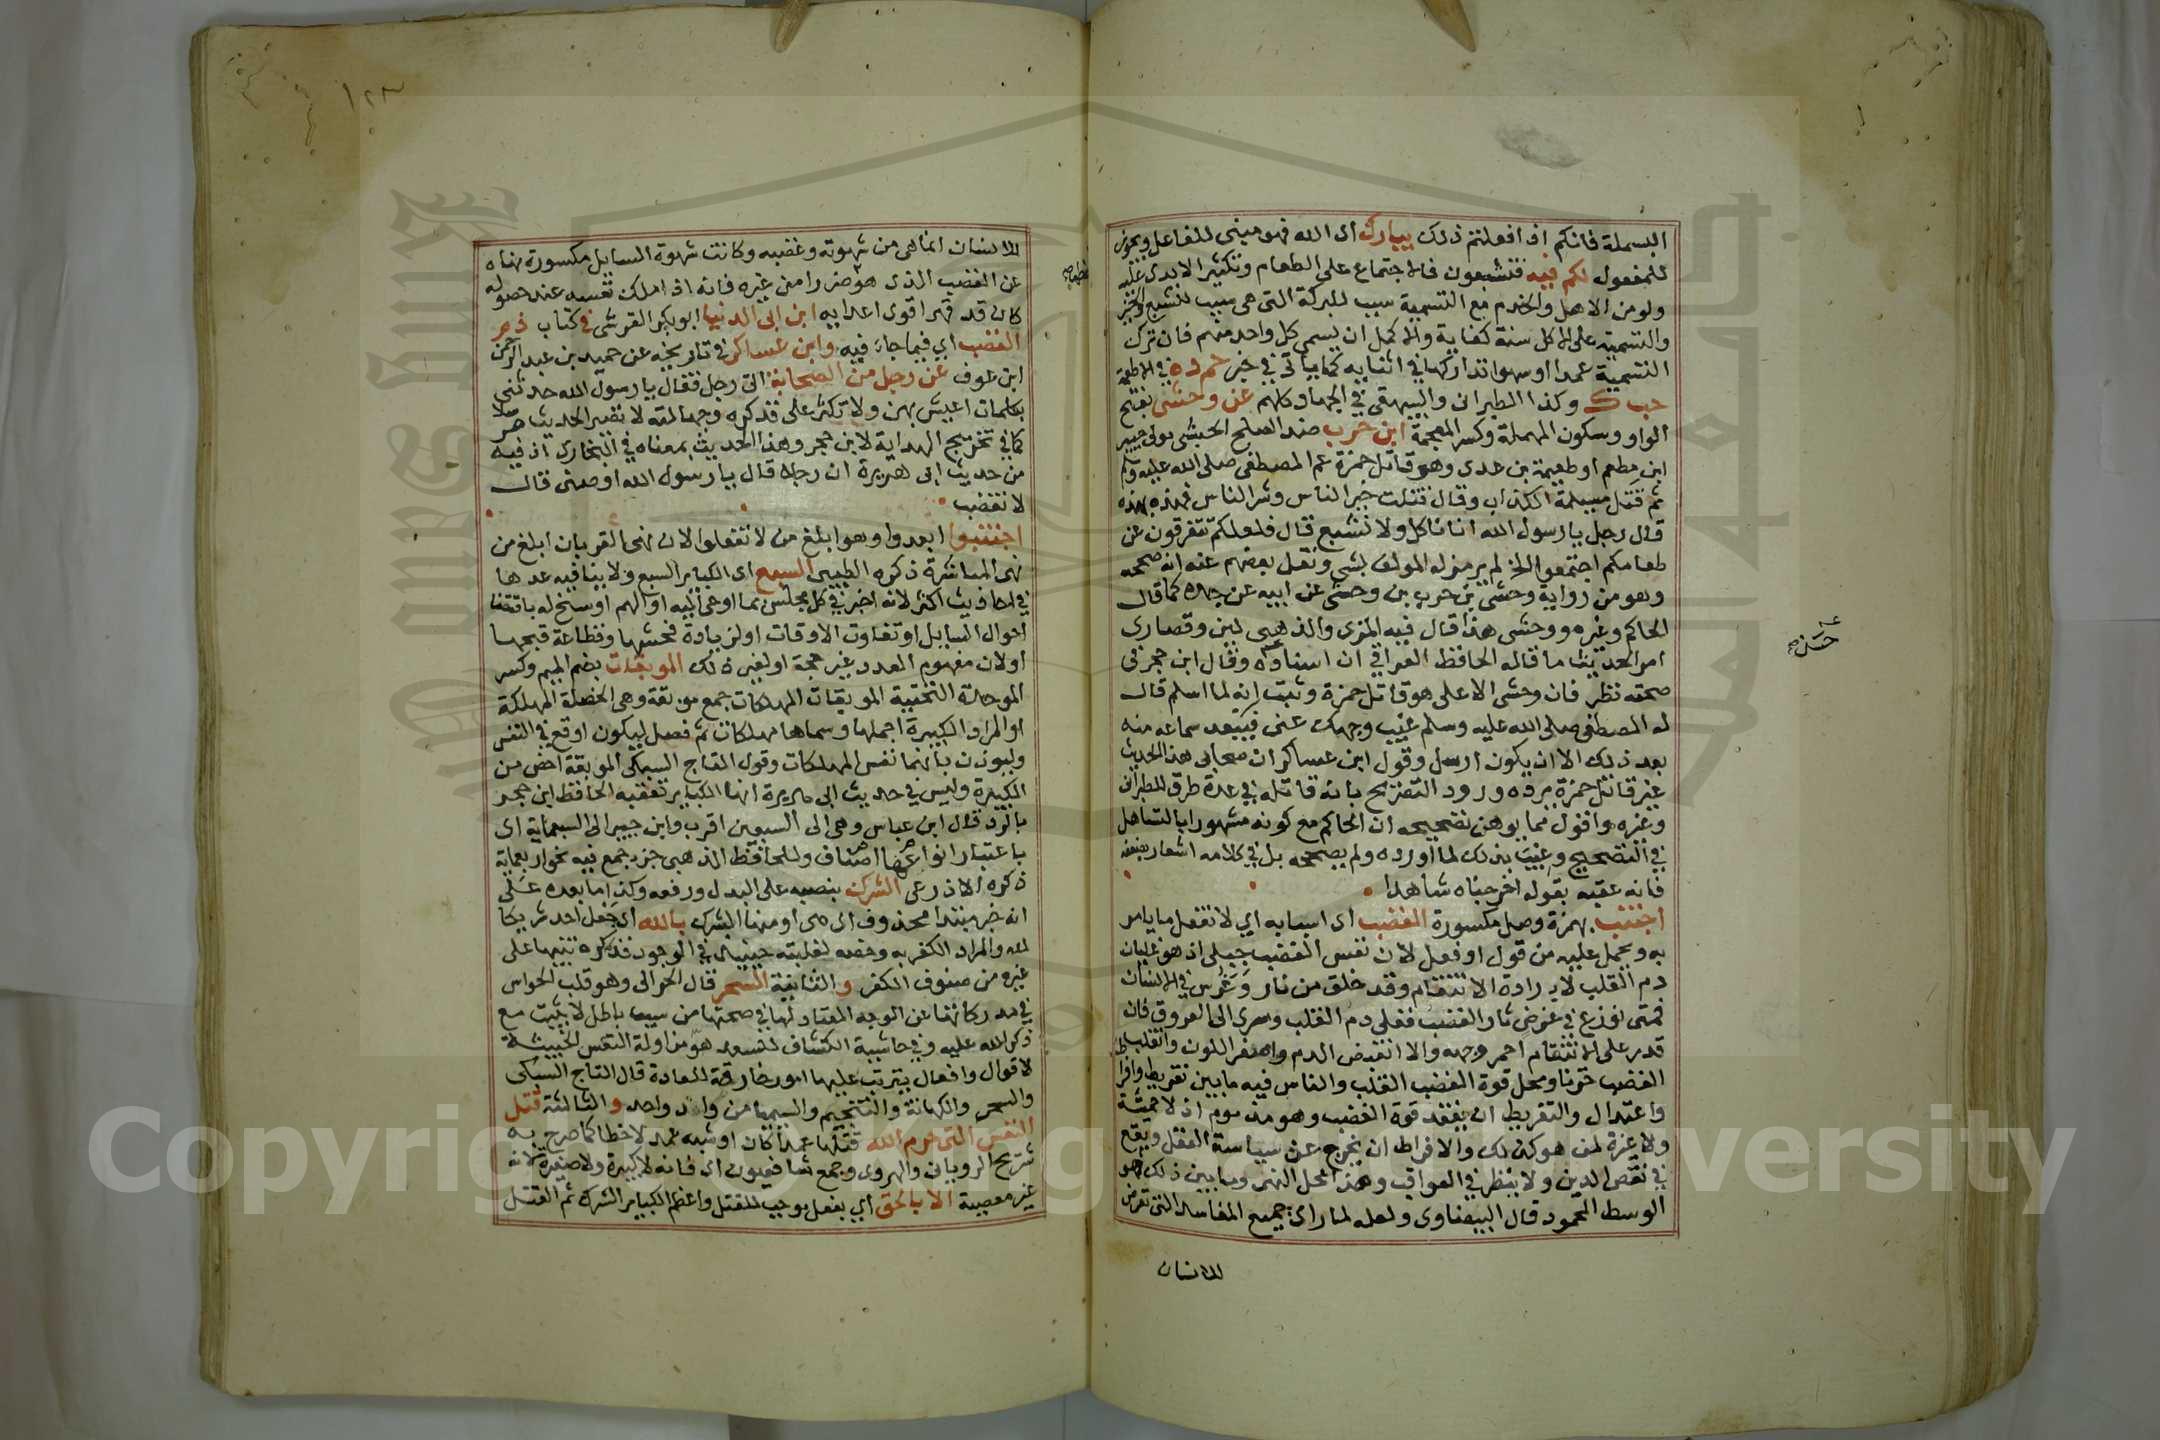 البسملة فانكم اذا فعلتم ذلك يبارك اى الله فهو مبنى للفاعل ويجوز
للمفعول لكم فيه فتشبعون فالاجتماع على الطعام وتكثير الايدى عليه
ولو من الاهل والخدم مع التسمية سبب للبركة التى هى سبب للشبع والخير
والتسمية على الاكل سنة كفاية والاكمل ان يسمى كل واحد منهم فان ترك
التسمية عمدا او سهوا تداركها فى اثنايه كما ياتى فى خبر حم د ه فى الاطعمة
حب ك وكذا الطبرانى والبيهقى فى الجهاد كلهم عن وحشى بفتح
الواو وسكون المهملة وكسر المعجمة ابن حرب ضد الصلح الحبشى مولى جبير
ابن مطعم او طعيمة بن عدى وهو قاتل حمزة عم المصطفى صلى الله عليه وسلم
ثم قتل مسيلمة الكذاب وقال قتلت خير الناس وشر الناس فهذه بهذه
قال رجل يا رسول الله انا ناكل ولا نشبع قال فلعلكم تتفرقون عن
طعامكم اجتمعوا الخ لم يرمز له المولف بشى ونقل بعضهم عنه انه صححه
وهو من رواية وحشى بن حرب بن وحشى عن ابيه عن جده كما قال
الحاكم وغيره ووحشى هذا قال فيه المزى والذهبى لين وقصارى
امر الحديث ما قاله الحافظ العراقى ان اسناده وقال ابن حجر فى
صحته نظر فان وحشى الاعلى هو قاتل حمزة وثبت انه لما اسلم قال
له المصطفى صلى الله عليه وسلم غيب وجهك عنى فيبعد سماعه منه
بعد ذلك الا ان يكون ارسل وقول ابن عساكر ان صحابى هذا الحديث
غير قاتل حمزة يرده ورود التصريح بانه قاتله فى عدة طرق للطبرانى
وغيره واقول مما يوهن تصحيحه ان الحاكم مع كونه مشهورا بالتساهل
فى التصحيح وعيب بذلك لما اورده ولم يصححه بل فى كلامه اشعار بضعفه
فانه عقبه بقوله اخرجناه شاهدا
اجتنب بهمزة وصل مكسورة الغضب اى اسبابه اي لا تفعل ما يامر
به ويحمل عليه من قول او فعل لان نفس الغضب جبلى اذ هو غليان
دم القلب لارادة الانتقام وقد خلق من نار وغرس فى الانسان
فمتى نوزع فى غرض ثار الغضب فغلى دم القلب وسرى الى العروق فان
قدر على الانتقام احمر وجهه والا انقبض الدم واصفر اللون وانقلب
الغضب حزنا ومحل قوة الغضب القلب والناس فيه ما بين تفريط وافراط
واعتدال والتفريط ان يفقد قوة الغضب وهو مذموم اذ لا حمية
ولا غيرة لمن هو كذلك والافراط ان يخرج عن سياسة العقل ويقع
فى نقص الدين ولا ينظر فى العواقب وهذا محل النهى وما بين ذلك هو
الوسط المحمود قال البيضاوى ولعله لما راى جميع المفاسد التى تعرض
للانسان
حسن صح
للانسان انما هى من شهوته وغضبه وكانت شهوة السايل مكسورة نهاه
عن الغضب الذى هو ضررا من غيره فانه اذا ملك نفسه عند حصوله
كان قد قهر اقوى اعدايه ابن ابى الدنيا ابو بكر القرشى فى كتاب ذم
الغضب اي فيما جاء فيه وابن عساكر فى تاريخه عن حميد بن عبد الرحمن
ابن عوف عن رجل من الصحابة اتى رجل فقال يا رسول الله حدثنى
بكلمات اعيش بهن ولا تكثر على فذكره وجهالته لا تضير الحديث
كما فى تخريج الهداية لابن حجر وهذا الحديث بمعناه فى البخارى اذ فيه
من حديث ابى هريرة ان رجلا قال يا رسول الله اوصنى قال
لا تغضب
اجتنبوا ابعدوا وهو ابلغ من لا تفعلوا لان نهى القربان ابلغ من
نهى المباشرة ذكره الطيبى السبع اى الكباير السبع ولا ينافيه عدها
فى احاديث اكثر لانه اخبر فى كل مجلس بما اوحى اليه او الهم او سنح له باقتضا
احوال السايل او تفاوت الاوقات او لزيادة فحشها وفظاعة قبحها
او لان مفهوم العدد غير حجة او لغير ذلك الموبقات بضم الميم وكسر
الموحدة التحتية الموبقات المهلكات جمع موبقة وهى الخصلة المهلكة
او المراد الكبيرة اجملها وسماها مهلكات ثم فصل ليكون اوقع فى النفس
وليوذن بانها نفس المهلكات وقول التاج السبكى الموبقة اخص من
الكبيرة وليس فى حديث ابى هريرة انها الكباير تعقبه الحافظ ابن حجر
بالرد قال ابن عباس وهى الى السبعين اقرب وابن جبير الى السبعماية اى
باعتبار انواعها اصناف وللحافظ الذهبى جزء جمع فيه نحو اربعماية
ذكره الاذرعى الشرك بنصبه على البدل ورفعه وكذا ما بعده على
انه خبر مبتدا محذوف اى هى او منها الشرك بالله اى جعل احد شريكا
لله والمراد الكفر به وخصه لغلبته حينئذ فى الوجود فذكره تنبيها على
غيره من صنوف الكفر و الثانية السحر قال الحرالى وهو قلب الحواس
فى مدركاتها عن الوجه المعتاد لها فى صحتها من سبب باطل لا يثبت مع
ذكر الله عليه وفى حاشية الكشاف للسعد هو مزاولة النفس الخبيثة
لاقوال وافعال يترتب عليها امور خارقة للعادة قال التاج السبكى
والسحر والكهانة والتنجيم والسيميا من واد واحد و الثالثة قتل
النفس التى حرم الله قتلها عمدا كان او شبه عمد لا خطا كما صرح به
شريح الرويانى والهروى وجمع شافعيون اى فانه لا كبيرة ولا صغيرة لانه
غير معصية الا بالحق اي بفعل موجب للقتل واعظم الكباير الشرك ثم القتل
Copyright © King Saud University